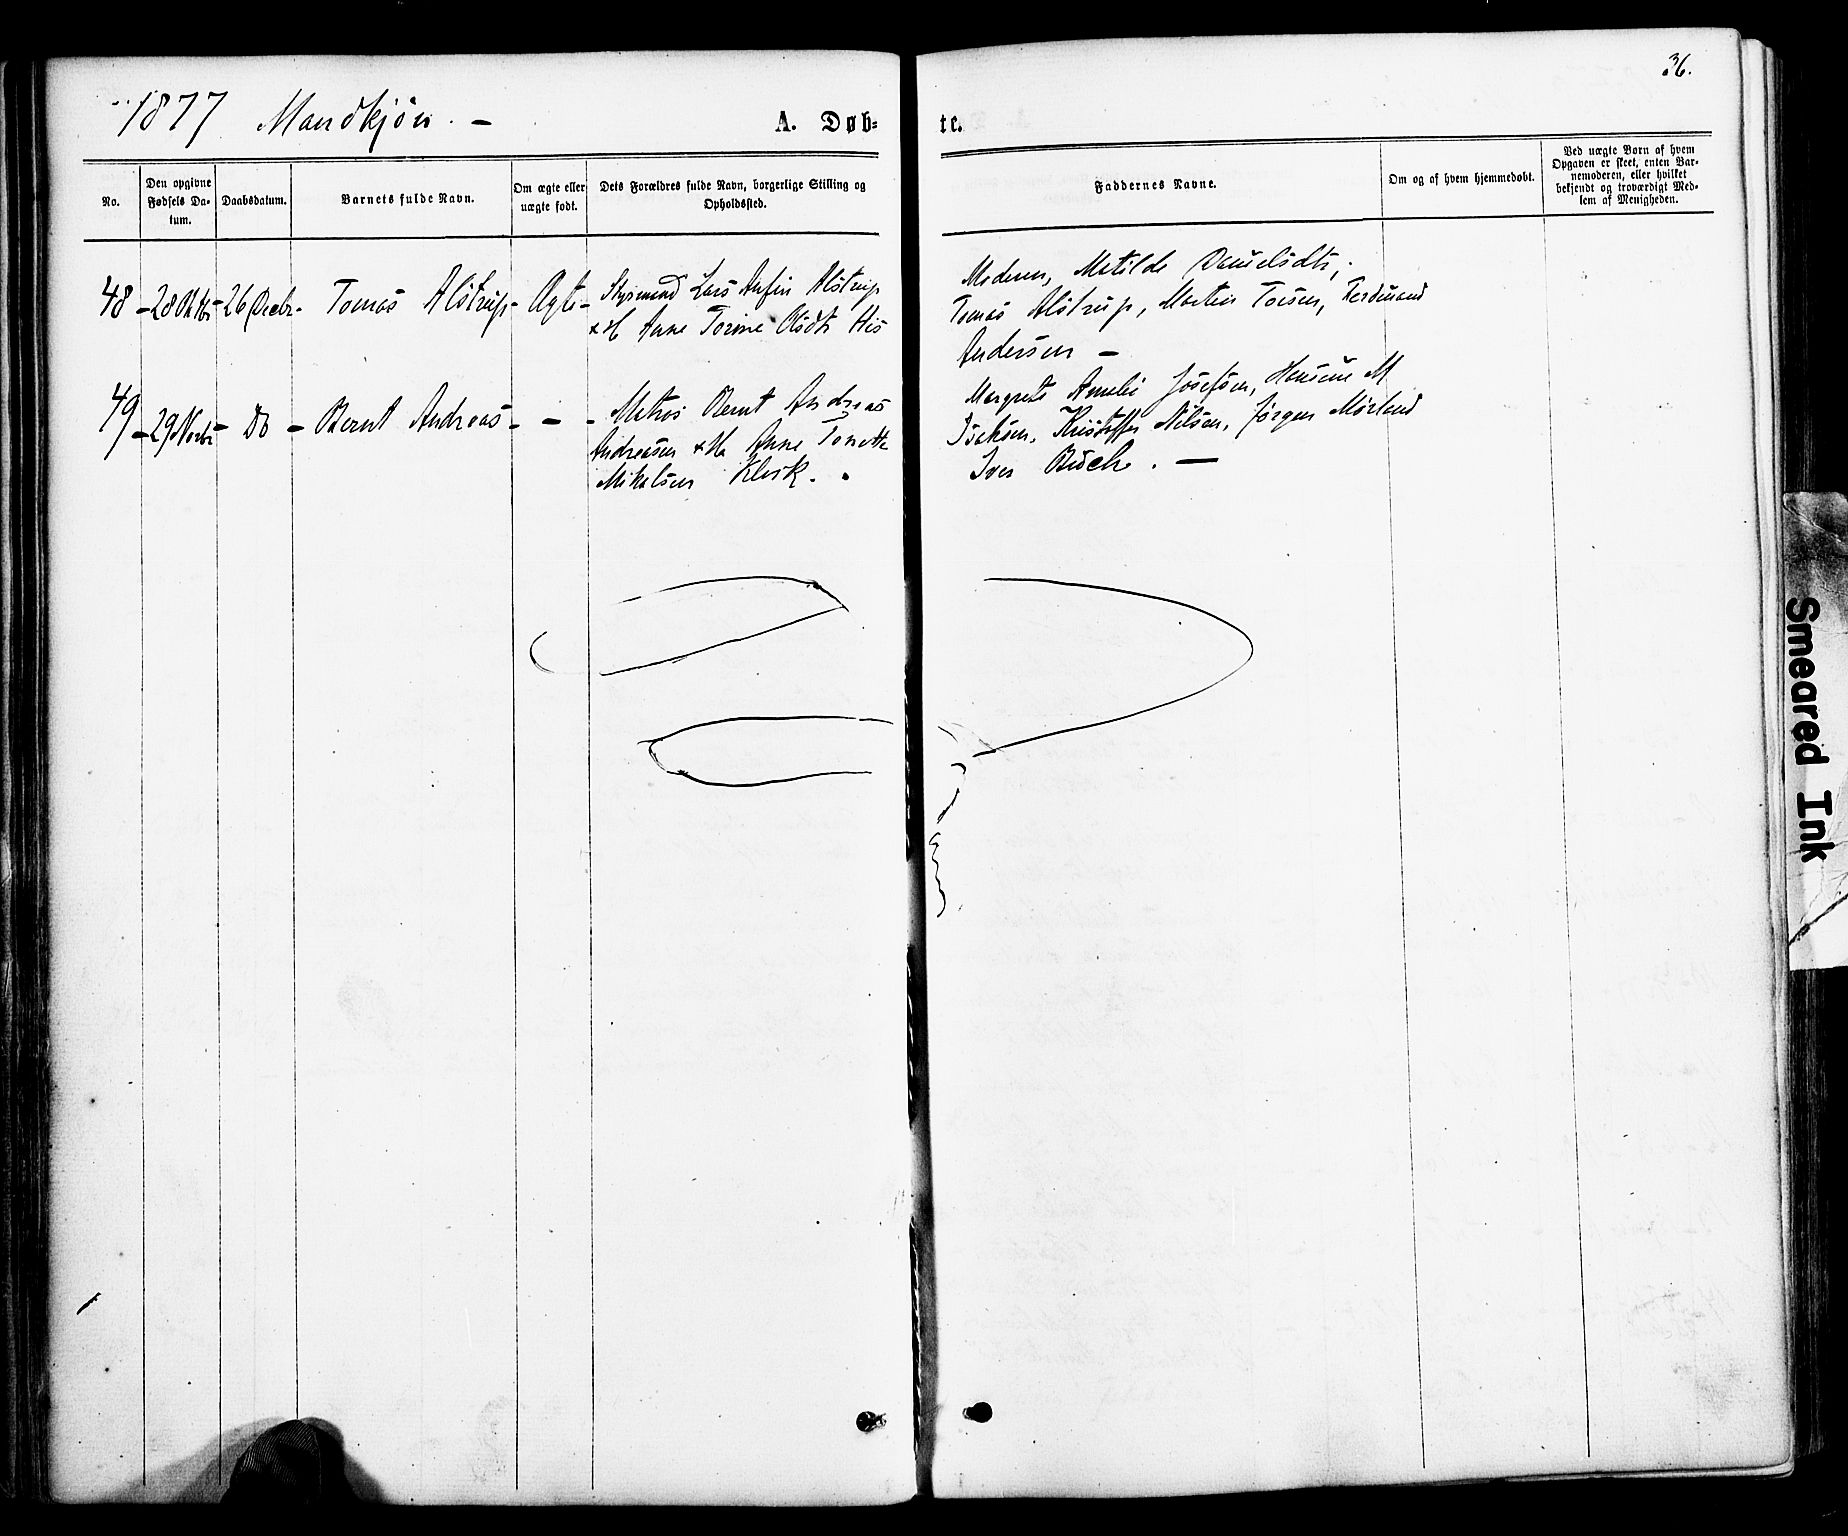 36.
1877 Mandkjön. -
A. Døb=
te.
No.
Den opgivne
Fødsels Da-
tum.
Daabsdatum.
Barnets fulde Navn.
Om ægte eller
uægte født.
Dets Forældres fulde Navn, borgerlige Stilling og
Opholdssted.
Faddernes Navne.
Om og af hvem hjemmedøbt.
Ved uægte Børn af hvem
Opgaven er skeet, enten Bar-
nemoderen, eller hvilket
bekjendt og troværdigt Med-
lem af Menigheden.
48 - 28 Oktbr - 26 Decbr - Tomas Alstrup - Ægte -
Styrmand Lars Anfin Alstrup
& H Anne Torine Olsdtr His
Moderen, Matilde Danielsdtr,
Tomas Alstrup, Martin Toisen, Ferdinand
Andersen -
49 - 29 Novbr - Do - Bernt Andreas - - -
Matros Bernt Andreas
Andreasen & Hu Anne Tonette
Mikalsen Klevk.
Margrete Amalie Josefsen, Hansine M
Isaksen, Kristoffer Nilsen, Jørgen Mørland
Iver Busch. -
Smeared Ink